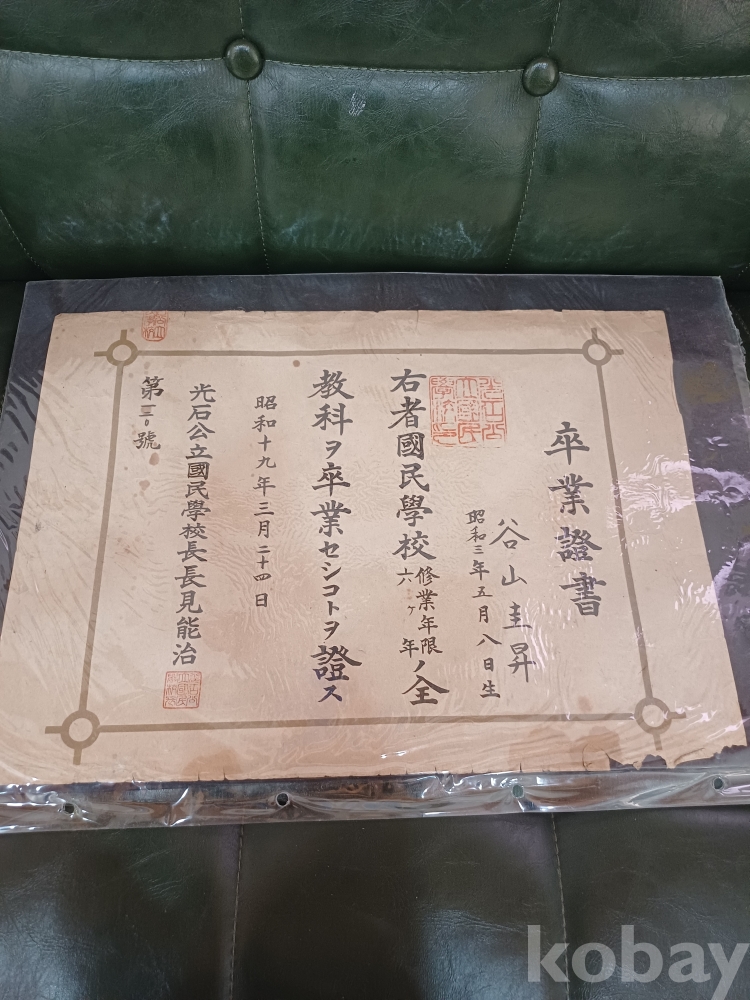 卒業證書
谷山圭昇
昭和三年五月八日生
右者國民學校修業年限六ヶ年ノ全
教科ヲ卒業セシコトヲ證ス
昭和十九年三月二十四日
光石公立國民學校長長見能治
第三〇號
kobay